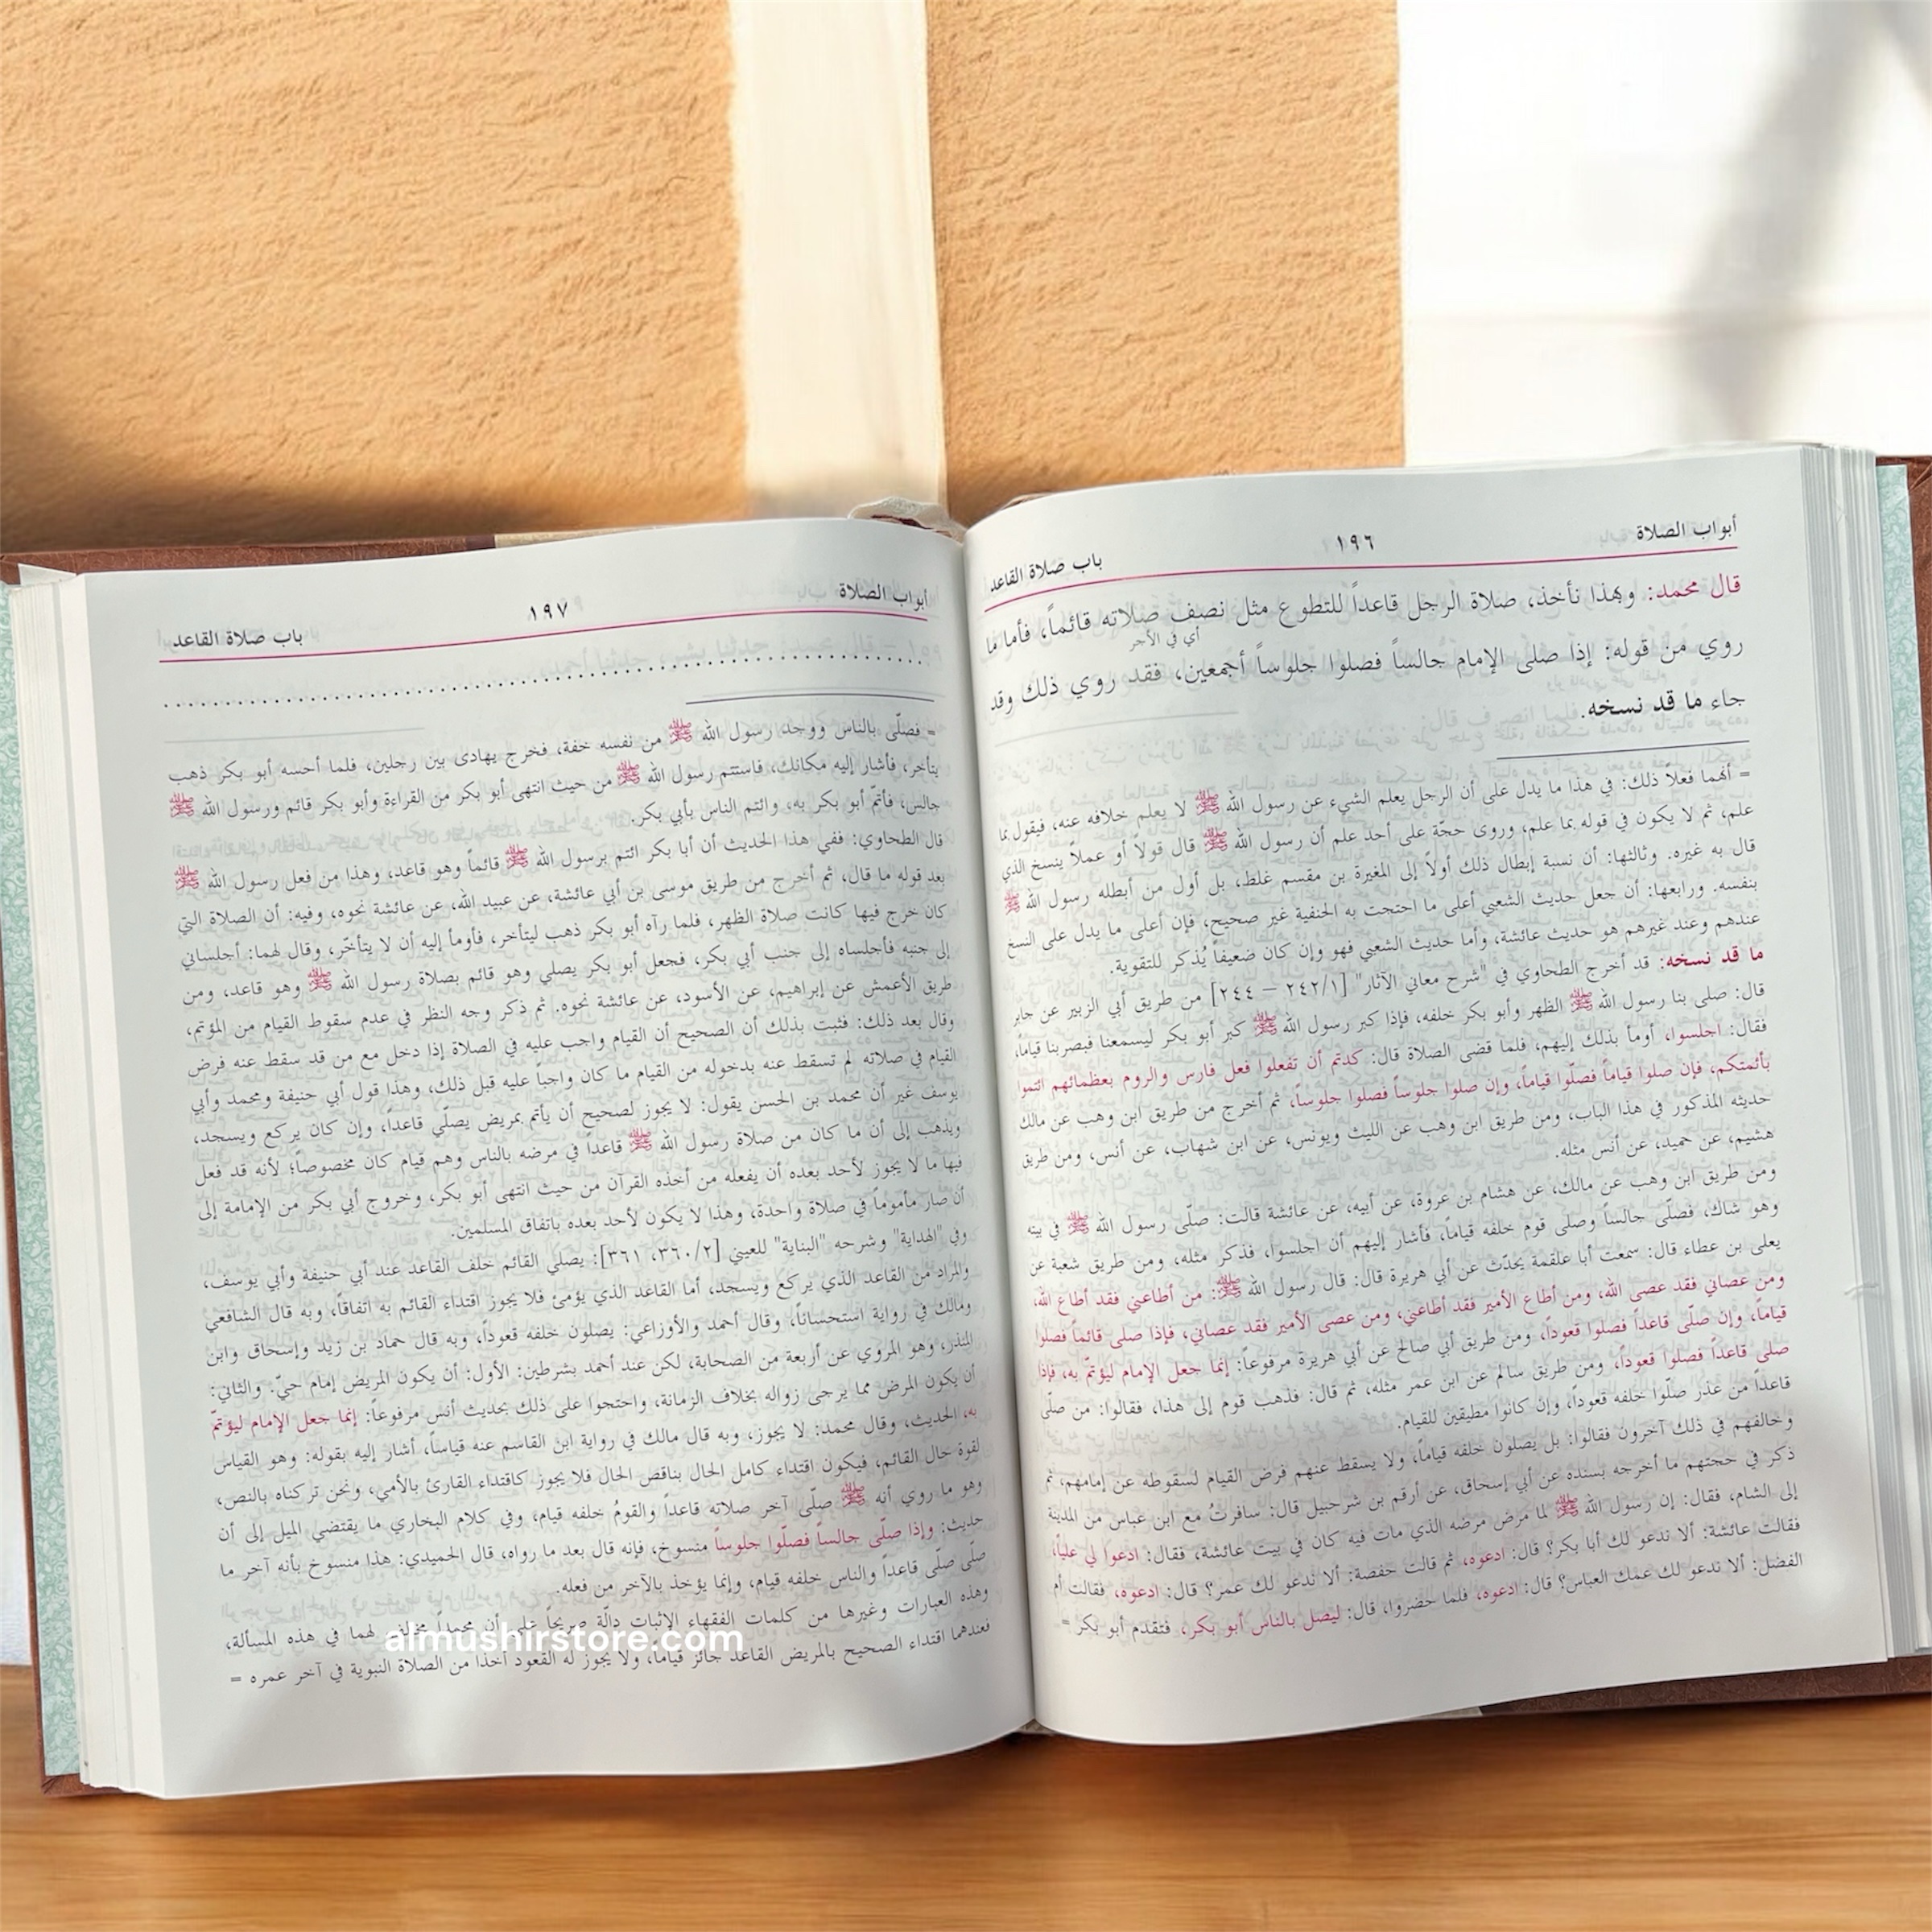 أبواب الصلاة ١٩٦ باب صلاة القاعد
قال محمد: وبهذا نأخذ، صلاة الرجل قاعداً للتطوع مثل نصف صلاته قائماً، فأما ما
أي في الأجر
روي من قوله: إذا صلى الإمام جالساً فصلوا جلوساً أجمعين، فقد روي ذلك وقد
جاء ما قد نسخه.
= أنهما فعلاً ذلك: في هذا ما يدل على أن الرجل يعلم الشيء عن رسول الله ﷺ لا يعلم خلافه عنه، فيقول بما
علم، ثم لا يكون في قوله بما علم، وروى حجّة على أحد علم أن رسول الله ﷺ قال قولاً أو عملاً ينسخ الذي
قال به غيره. وثالثها: أن نسبة إبطال ذلك أولاً إلى المغيرة بن مقسم غلط، بل أول من أبطله رسول الله ﷺ
بنفسه. ورابعها: أن جعل حديث الشعبي أعلى ما احتجت به الحنفية غير صحيح، فإن أعلى ما يدل على النسخ
عندهم وعند غيرهم هو حديث عائشة، وأما حديث الشعبي فهو وإن كان ضعيفاً يُذكر للتقوية.
ما قد نسخه: قد أخرج الطحاوي في "شرح معاني الآثار" [٢٤٢/١ – ٢٤٤] من طريق أبي الزبير عن جابر
قال: صلى بنا رسول الله ﷺ الظهر وأبو بكر خلفه، فإذا كبر رسول الله ﷺ كبر أبو بكر ليسمعنا فبصر بنا قياماً،
فقال: اجلسوا، أومأ بذلك إليهم، فلما قضى الصلاة قال: كدتم أن تفعلوا فعل فارس والروم بعظمائهم ائتموا
بأئمتكم، فإن صلوا قياماً فصلّوا قياماً، وإن صلوا جلوساً فصلوا جلوساً، ثم أخرج من طريق ابن وهب عن مالك
حديثه المذكور في هذا الباب، ومن طريق ابن وهب عن الليث ويونس، عن ابن شهاب، عن أنس، ومن طريق
هشيم، عن حميد، عن أنس مثله.
ومن طريق ابن وهب عن مالك، عن هشام بن عروة، عن أبيه، عن عائشة قالت: صلّى رسول الله ﷺ في بيته
وهو شاك، فصلّى جالساً وصلى قوم خلفه قياماً، فأشار إليهم أن اجلسوا، فذكر مثله، ومن طريق شعبة عن
يعلى بن عطاء قال: سمعت أبا علقمة يحدّث عن أبي هريرة قال: قال رسول الله ﷺ: من أطاعني فقد أطاع الله،
ومن عصاني فقد عصى الله، ومن أطاع الأمير فقد أطاعني، ومن عصى الأمير فقد عصاني، فإذا صلى قائماً فصلوا
قياماً، وإن صلّى قاعداً فصلوا قعوداً، ومن طريق أبي صالح عن أبي هريرة مرفوعاً: إنما جعل الإمام ليؤتمّ به، فإذا
صلى قاعداً فصلوا قعوداً، ومن طريق سالم عن ابن عمر مثله، ثم قال: فذهب قوم إلى هذا، فقالوا: من صلّى
قاعداً من عذر صلّوا خلفه قعوداً، وإن كانوا مطيقين للقيام.
وخالفهم في ذلك آخرون فقالوا: بل يصلون خلفه قياماً، ولا يسقط عنهم فرض القيام لسقوطه عن إمامهم، ثم
ذكر في حجتهم ما أخرجه بسنده عن أبي إسحاق، عن أرقم بن شرحبيل قال: سافرتُ مع ابن عباس من المدينة
إلى الشام، فقال: إن رسول الله ﷺ لما مرض مرضه الذي مات فيه كان في بيت عائشة، فقال: ادعوا لي علياً،
فقالت عائشة: ألا ندعو لك أبا بكر؟ قال: ادعوه، ثم قالت حفصة: ألا ندعو لك عمر؟ قال: ادعوه، فقالت أم
الفضل: ألا ندعو لك عمك العباس؟ قال: ادعوه، فلما حضروا، قال: ليصل بالناس أبو بكر، فتقدم أبو بكر =
أبواب الصلاة ١٩٧ باب صلاة القاعد
= فصلّى بالناس ووجد رسول الله ﷺ من نفسه خفة، فخرج يهادى بين رجلين، فلما أحسه أبو بكر ذهب
يتأخر، فأشار إليه مكانك، فاستتم رسول الله ﷺ من حيث انتهى أبو بكر من القراءة وأبو بكر قائم ورسول الله ﷺ
جالس، فأتمّ أبو بكر به، وائتم الناس بأبي بكر.
قال الطحاوي: ففي هذا الحديث أن أبا بكر ائتم برسول الله ﷺ قائماً وهو قاعد، وهذا من فعل رسول الله ﷺ
بعد قوله ما قال، ثم أخرج من طريق موسى بن أبي عائشة، عن عبيد الله، عن عائشة نحوه، وفيه: أن الصلاة التي
كان خرج فيها كانت صلاة الظهر، فلما رآه أبو بكر ذهب ليتأخر، فأومأ إليه أن لا يتأخّر، وقال لهما: أجلساني
إلى جنبه فأجلساه إلى جنب أبي بكر، فجعل أبو بكر يصلي وهو قائم بصلاة رسول الله ﷺ وهو قاعد، ومن
طريق الأعمش عن إبراهيم، عن الأسود، عن عائشة نحوه. ثم ذكر وجه النظر في عدم سقوط القيام من المؤتم،
وقال بعد ذلك: فثبت بذلك أن الصحيح أن القيام واجب عليه في الصلاة إذا دخل مع من قد سقط عنه فرض
القيام في صلاته لم تسقط عنه بدخوله من القيام ما كان واجباً عليه قبل ذلك، وهذا قول أبي حنيفة ومحمد وأبي
يوسف غير أن محمد بن الحسن يقول: لا يجوز لصحيح أن يأتم بمريض يصلّي قاعداً، وإن كان يركع ويسجد،
ويذهب إلى أن ما كان من صلاة رسول الله ﷺ قاعداً في مرضه بالناس وهم قيام كان مخصوصاً؛ لأنه قد فعل
فيها ما لا يجوز لأحد بعده أن يفعله من أخذه القرآن من حيث انتهى أبو بكر، وخروج أبي بكر من الإمامة إلى
أن صار مأموماً في صلاة واحدة، وهذا لا يكون لأحد بعده باتفاق المسلمين.
وفي "الهداية" وشرحه "البناية" للعيني [٣٦٠/٢، ٣٦١]: يصلي القائم خلف القاعد عند أبي حنيفة وأبي يوسف،
والمراد من القاعد الذي يركع ويسجد، أما القاعد الذي يؤمئ فلا يجوز اقتداء القائم به اتفاقاً، وبه قال الشافعي
ومالك في رواية استحساناً، وقال أحمد والأوزاعي: يصلون خلفه قعوداً، وبه قال حماد بن زيد وإسحاق وابن
المنذر، وهو المروي عن أربعة من الصحابة، لكن عند أحمد بشرطين: الأول: أن يكون المريض إمام حيّ. والثاني:
أن يكون المرض مما يرجى زواله بخلاف الزمانة، واحتجوا على ذلك بحديث أنس مرفوعاً: إنما جعل الإمام ليؤتمّ
به، الحديث، وقال محمد: لا يجوز، وبه قال مالك في رواية ابن القاسم عنه قياساً، أشار إليه بقوله: وهو القياس
لقوة حال القائم، فيكون اقتداء كامل الحال بناقص الحال فلا يجوز كاقتداء القارئ بالأمي، ونحن تركناه بالنص،
وهو ما روي أنه ﷺ صلّى آخر صلاته قاعداً والقومُ خلفه قيام، وفي كلام البخاري ما يقتضي الميل إلى أن
حديث: وإذا صلّى جالساً فصلّوا جلوساً منسوخ، فإنه قال بعد ما رواه، قال الحميدي: هذا منسوخ بأنه آخر ما
صلّى صلّى قاعداً والناس خلفه قيام، وإنما يؤخذ بالآخر من فعله.
وهذه العبارات وغيرها من كلمات الفقهاء الإثبات دالّة صريحاً على أن محمداً مخالف لهما في هذه المسألة،
فعندهما اقتداء الصحيح بالمريض القاعد جائز قياماً، ولا يجوز له القعود أخذاً من الصلاة النبوية في آخر عمره =
almushirstore.com